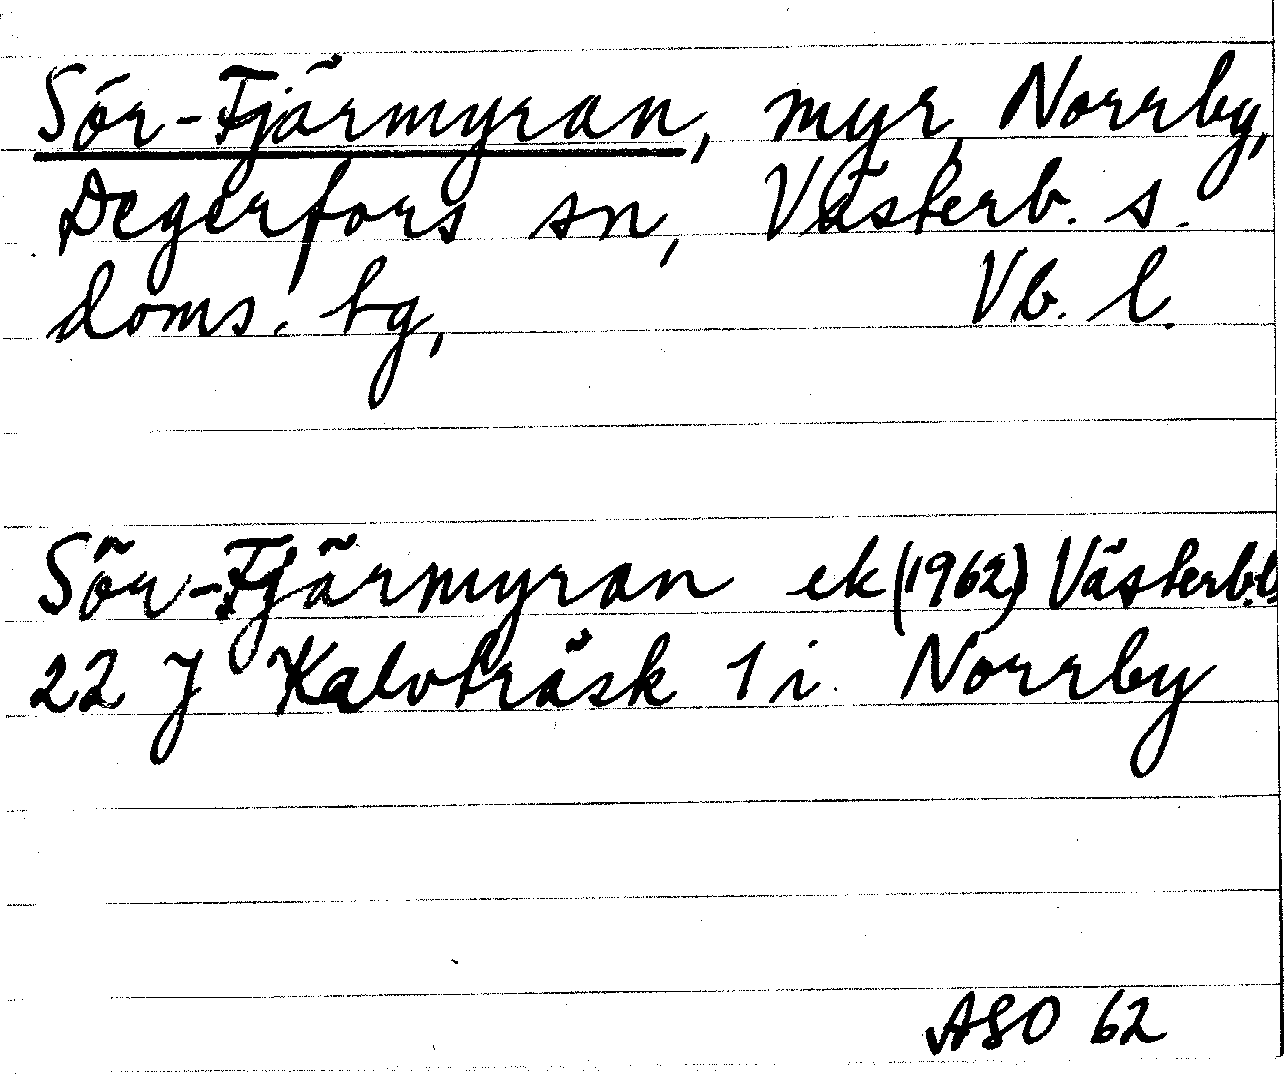 Sör-Fjärmyran, myr, Norrby,
Degerfors sn, Västerb. s.
doms. tg, Vb. l.
Sör-Fjärmyran ek (1962) Västerb.l.
22 J Kalvträsk 1 i. Norrby
ASO 62